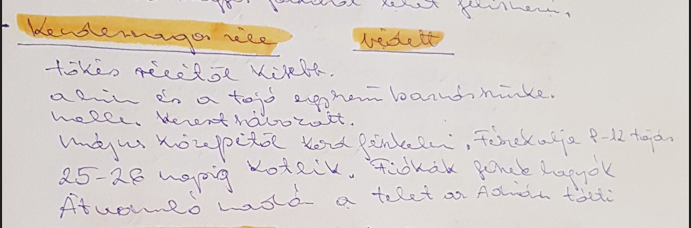 telet
Kendermagos réce védett
tőkés récétől kisebb.
a hím és a tojó egyszem barnásszürke.
melle keresztsávozott.
május közepétől kezd fészkelni, Fészekalja 8-12 tojás
25-26 napig kotlik. Fiókák fészek hagyók
Átvonuló madár a telet az Adrián tölti